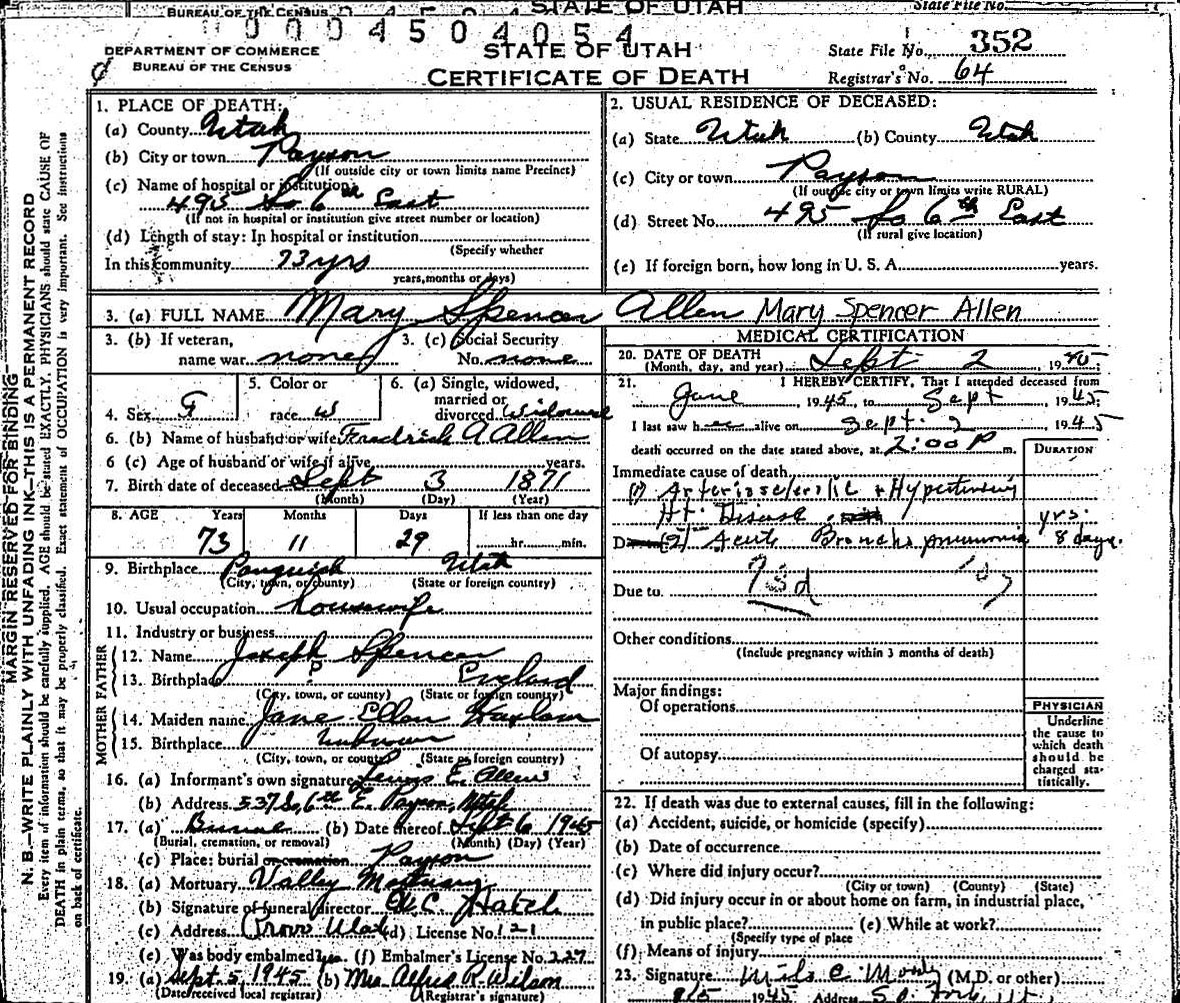 BUREAU OF THE CENSUS STATE OF UTAH State File No.
0 0 0 4 5 0 4 0 5 4
DEPARTMENT OF COMMERCE
BUREAU OF THE CENSUS
STATE OF UTAH
CERTIFICATE OF DEATH
State File No. 352
Registrar's No. 64
MARGIN RESERVED FOR BINDING
N. B.—WRITE PLAINLY WITH UNFADING INK—THIS IS A PERMANENT RECORD
Every item of information should be carefully supplied. AGE should be stated EXACTLY. PHYSICIANS should state CAUSE OF
DEATH in plain terms, so that it may be properly classified. Exact statement of OCCUPATION is very important. See instructions
on back of certificate.
1. PLACE OF DEATH:
(a) County Utah
(b) City or town Payson
(If outside city or town limits name Precinct)
(c) Name of hospital or institution:
495 So 6th East
(If not in hospital or institution give street number or location)
(d) Length of stay: In hospital or institution
(Specify whether
In this community 73 yrs
years, months or days)
2. USUAL RESIDENCE OF DECEASED:
(a) State Utah (b) County Utah
(c) City or town Payson
(If outside city or town limits write RURAL)
(d) Street No. 495 So 6th East
(If rural give location)
(e) If foreign born, how long in U. S. A. years.
3. (a) FULL NAME Mary Spencer Allen Mary Spencer Allen
3. (b) If veteran,
name war none
3. (c) Social Security
No. none
4. Sex F
5. Color or
race w
6. (a) Single, widowed,
married or
divorced Widowed
6. (b) Name of husband or wife Fredrick A Allen
6 (c) Age of husband or wife if alive years.
7. Birth date of deceased Sept 3 1871
(Month) (Day) (Year)
8. AGE Years Months Days If less than one day
73 11 29 hr. min.
9. Birthplace Panguich Utah
(City, town, or county) (State or foreign country)
10. Usual occupation housewife
11. Industry or business
FATHER
12. Name Joseph Spencer
13. Birthplace ? England
(City, town, or county) (State or foreign country)
MOTHER
14. Maiden name Jane Ellen Haslam
15. Birthplace Unknown
(City, town, or county) (State or foreign country)
16. (a) Informant's own signature Lewis E. Allen
(b) Address 537 So, 6th E. Payson, Utah
17. (a) Burial (b) Date thereof Sept 6 1945
(Burial, cremation, or removal) (Month) (Day) (Year)
(c) Place: burial or cremation Payson
18. (a) Mortuary Valley Mortuary
(b) Signature of funeral director Hatch
(c) Address Provo Utah (d) License No. 121
(e) Was body embalmed (f) Embalmer's License No. 227
19. (a) Sept. 5, 1945 (b) Mrs Alfred R. Wilson
(Date received local registrar) (Registrar's signature)
MEDICAL CERTIFICATION
20. DATE OF DEATH
(Month, day, and year) Sept 2, 1945;
21. I HEREBY CERTIFY, That I attended deceased from
June, 1945, to Sept, 1945;
I last saw h alive on Sept. 2, 1945
death occurred on the date stated above, at 2:00 P m.
DURATION
Immediate cause of death
(1) Arteriosclerotic + Hypertensive
Ht. Disease yrs.
(2) Acute Broncho pneumonia 8 days.
Due to 93d
Other conditions
(Include pregnancy within 3 months of death)
Major findings:
Of operations
Of autopsy
PHYSICIAN
Underline
the cause to
which death
should be
charged sta-
tistically.
22. If death was due to external causes, fill in the following:
(a) Accident, suicide, or homicide (specify)
(b) Date of occurrence
(c) Where did injury occur?
(City or town) (County) (State)
(d) Did injury occur in or about home on farm, in industrial place,
in public place? (e) While at work?
(Specify type of place
(f) Means of injury
23. Signature (M.D. or other)
9/5 1945 Address